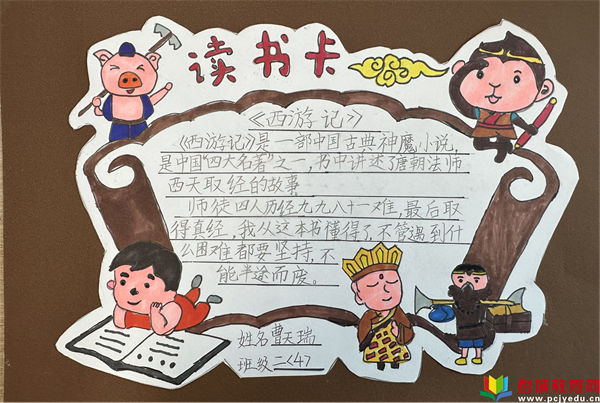 读书卡
《西游记》
《西游记》是一部中国古典神魔小说,
是中国“四大名著”之一,书中讲述了唐朝法师
西天取经的故事
师徒四人历经九九八十一难,最后取
得真经,我从这本书懂得了,不管遇到什
么困难都要坚持,不
能半途而废。
姓名曹天瑞
班级二<4>
www.pcjyedu.cn